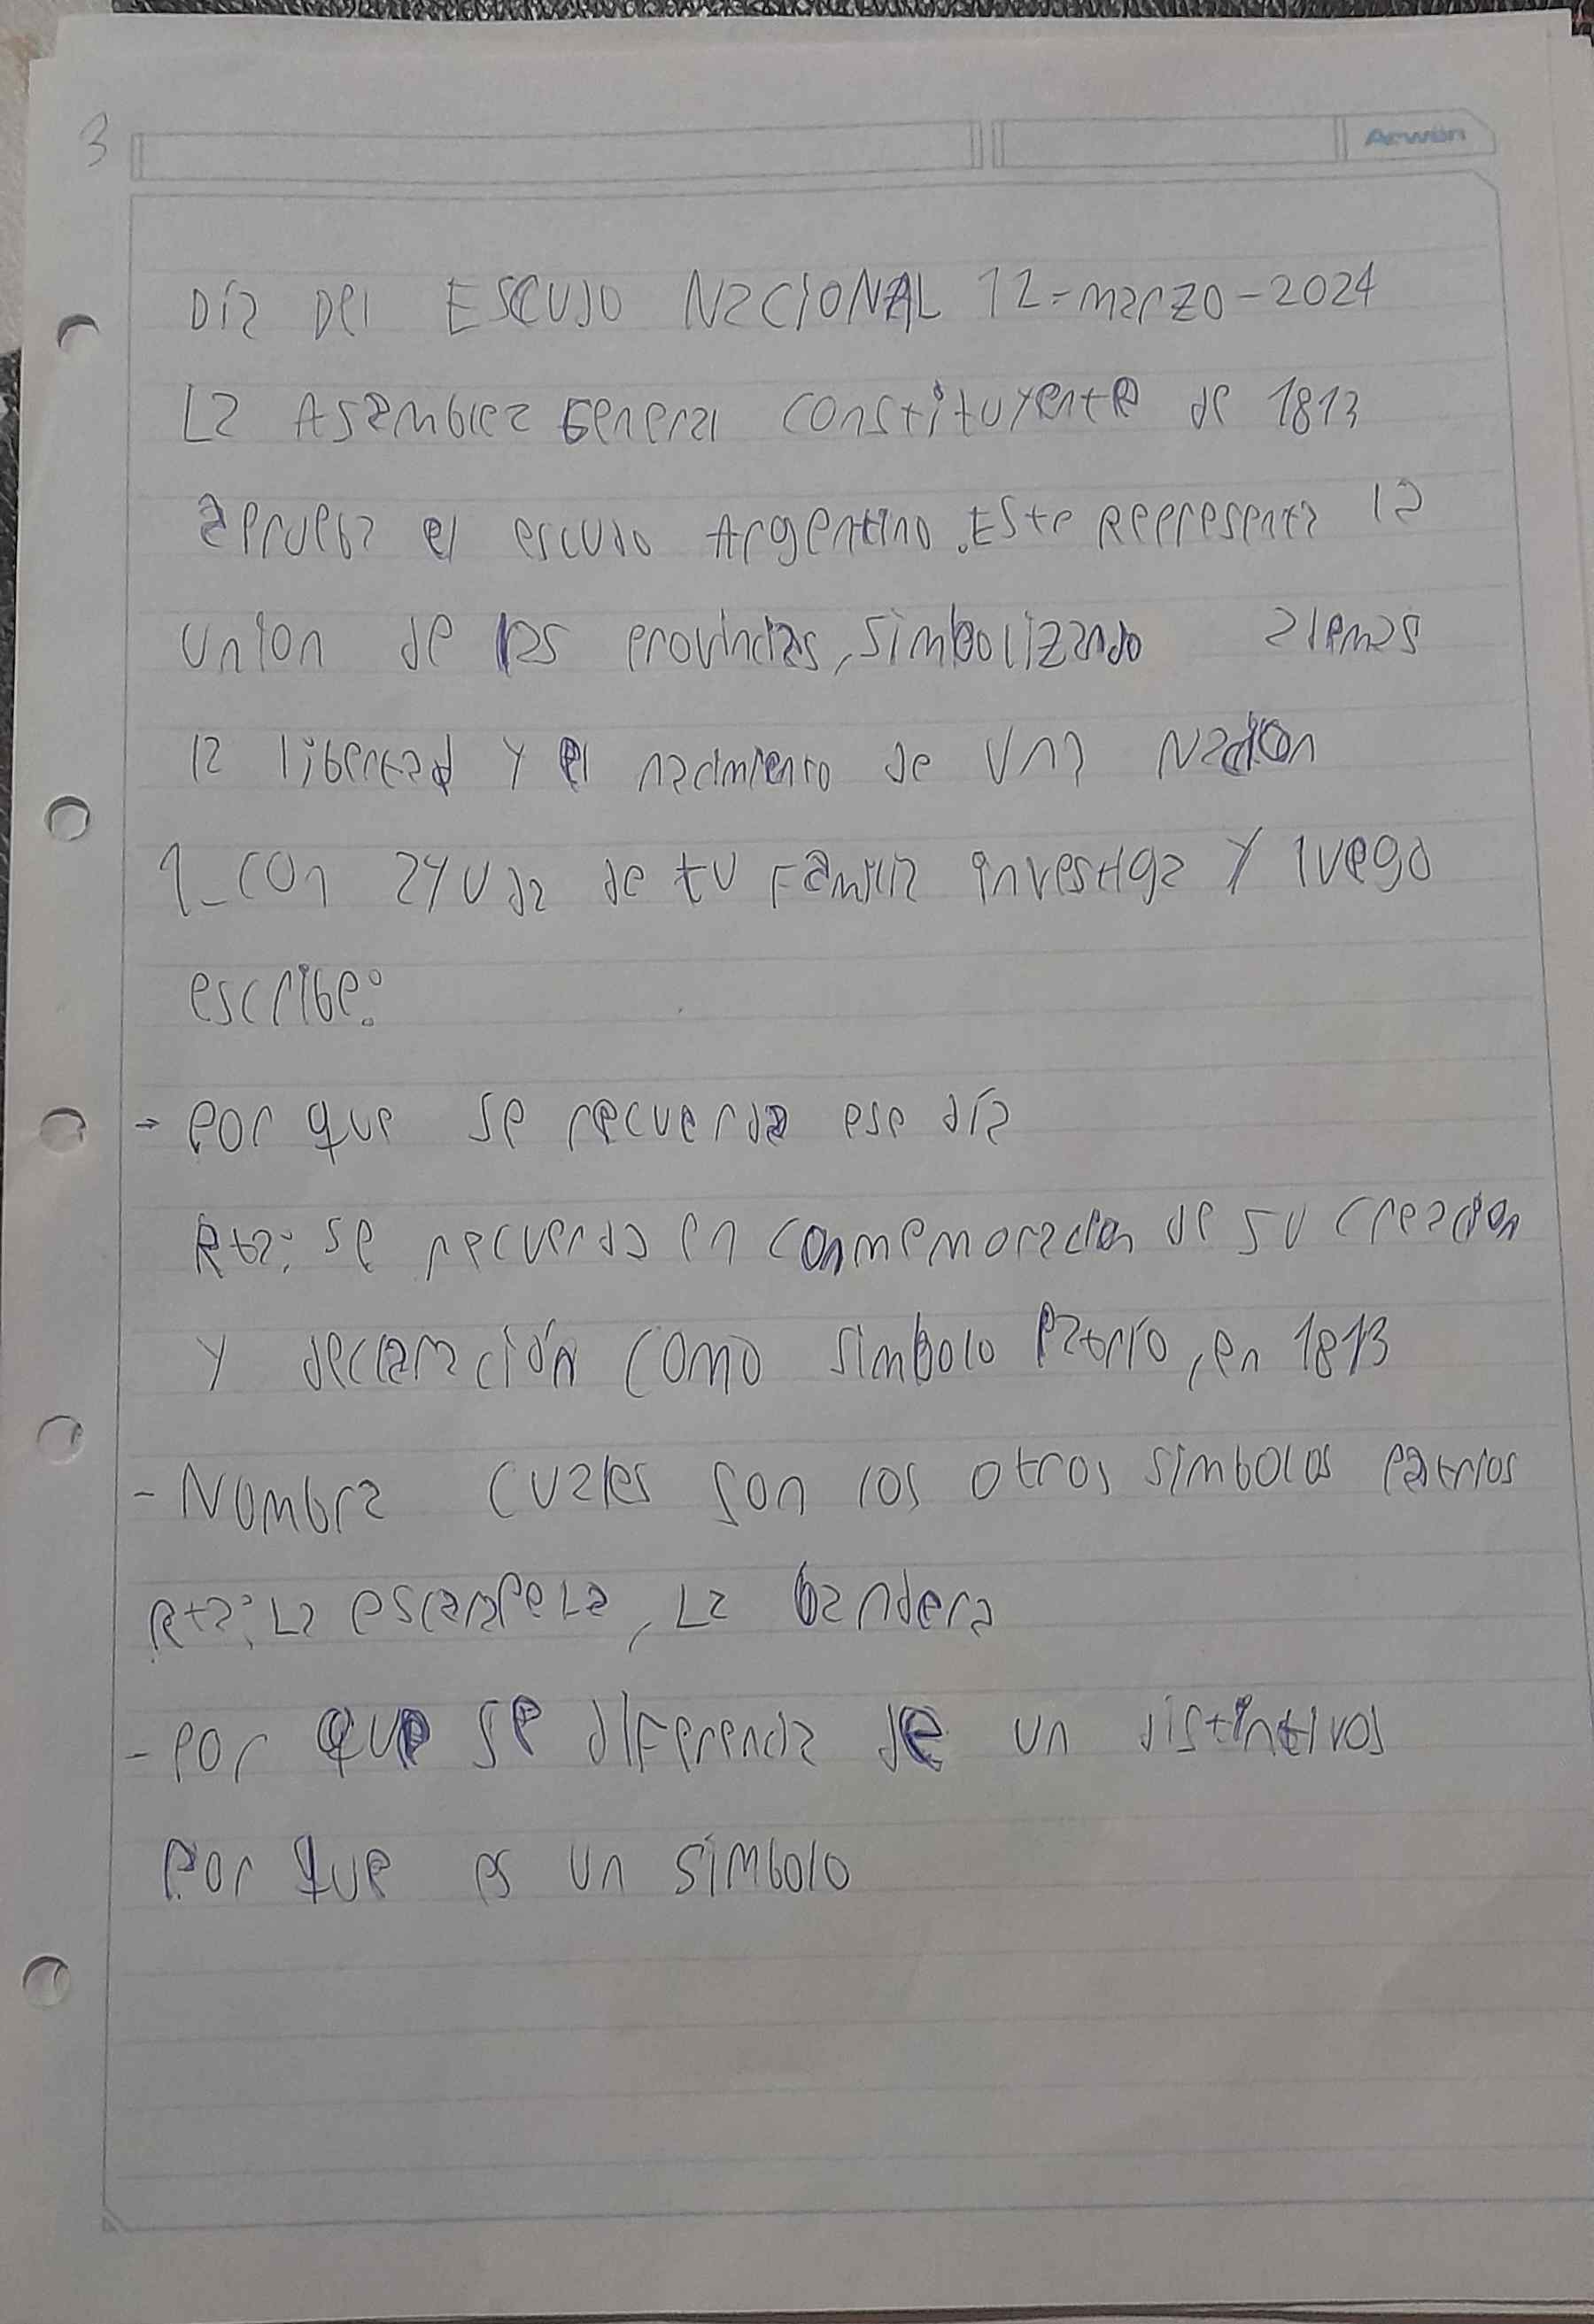 3
Arwen
Día Del ESCUdO NacIONAL 12-marzo-2024
La Asamblea General constituyente de 1813
aprueba el escudo Argentino. Este Representa la
union de las provincias, simbolizando ademas
la libertad y el nacimiento de Una Nacion
1_ con ayuda de tu Familia investiga y luego
escribe:
- por que se recuerda ese día
Rta: se recuerda en conmemoracion de su creacion
y declaración como simbolo Patrio, en 1813
- Nombra cuales son los otros simbolos patrios
Rta: La escarapela, La bandera
- por que se diferencia de un distintivos
Por que es un simbolo